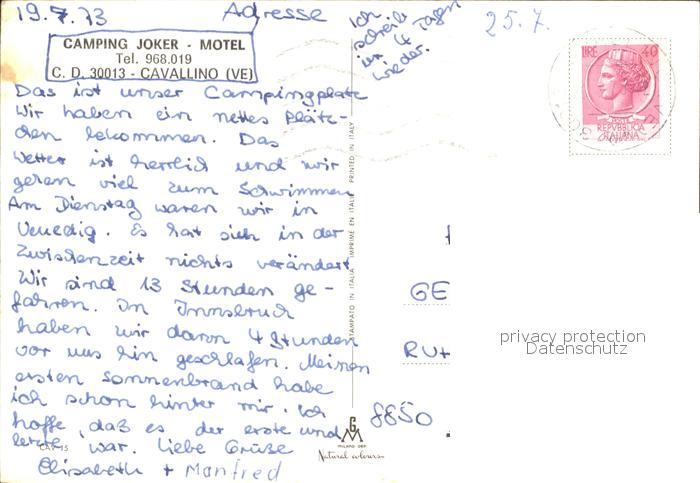 19.7.73 Adresse
Ich
schreib
in 4 Tagen
wieder.
25.7.
CAMPING JOKER - MOTEL
Tel. 968.019
C. D. 30013 - CAVALLINO (VE)
Das ist unser Campingplatz
Wir haben ein nettes Plätz-
chen bekommen. Das
Wetter ist herrlich und wir
gehen viel zum Schwimmen
Am Dienstag waren wir in
Venedig. Es hat sich in der
Zwischenzeit nichts verändert
Wir sind 13 Stunden ge-
fahren. In Innsbruck
haben wir davon 4 Stunden
vor uns hin geschlafen. Meinen
ersten Sonnenbrand habe
ich schon hinter mir. Ich
hoffe, daß es der erste und
letzte war. Liebe Grüße
Elisabeth + Manfred
CAV-15
STAMPATO IN ITALIA IMPRIME EN ITALIE PRINTED IN ITALY
MILANO DEP.
Natural colours
LIRE 40
REPVBBLICA
ITALIANA
GE
RUH
8850
privacy protection
Datenschutz